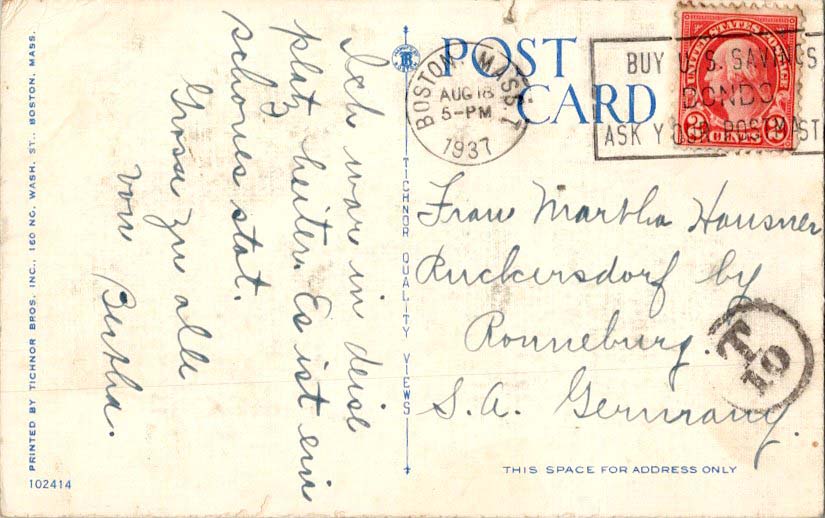 POST CARD
BOSTON MASS.
AUG 18
5-PM
1937
BUY U.S. SAVINGS
BONDS
ASK YOUR POSTMAST
UNITED STATES POSTAGE
2 2
Ich war in deise
platz heiter. Es ist ein
schones stat.
Grosse zu alle
von Bertha.
Frau Martha Hausner
Ruckersdorf by
Ronneburg.
S.A. Germany.
T.
10
THIS SPACE FOR ADDRESS ONLY
TICHNOR QUALITY VIEWS
PRINTED BY TICHNOR BROS. INC., 160 NO. WASH. ST., BOSTON, MASS.
102414